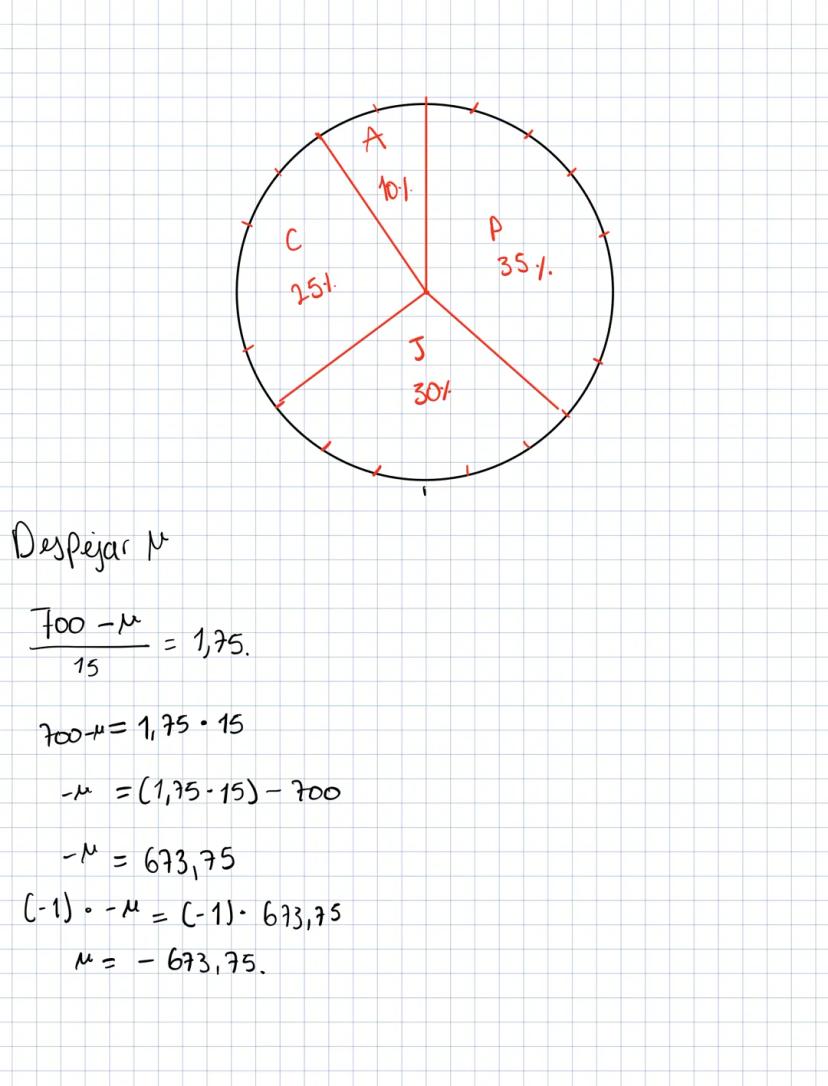 A
10%
P
35%
C
25%
J
30%
Despejar μ
700 - μ / 15 = 1,75.
700-μ = 1,75 · 15
-μ = (1,75 · 15) - 700
-μ = 673,75
(-1) · -μ = (-1) · 673,75
μ = - 673,75.